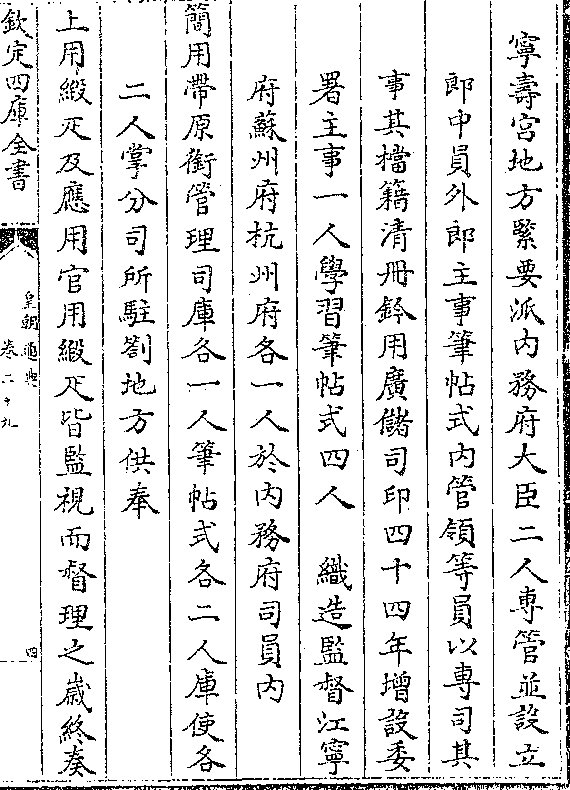 寧壽宮地方緊要派内務府大臣二人專管並設立
郎中員外郎主事筆帖式内管領等員以專司其
事其檔籍清冊鈐用廣儲司印四十四年增設委
署主事一人學習筆帖式四人　織造監督江寧
府蘇州府杭州府各一人於内務府司員内
簡用帶原銜管理司庫各一人筆帖式各二人庫使各
二人掌分司所駐劄地方供奉
上用緞疋及應用官用緞疋皆監視而督理之歲終奏
欽定四庫全書
皇朝通典
卷二十九
四